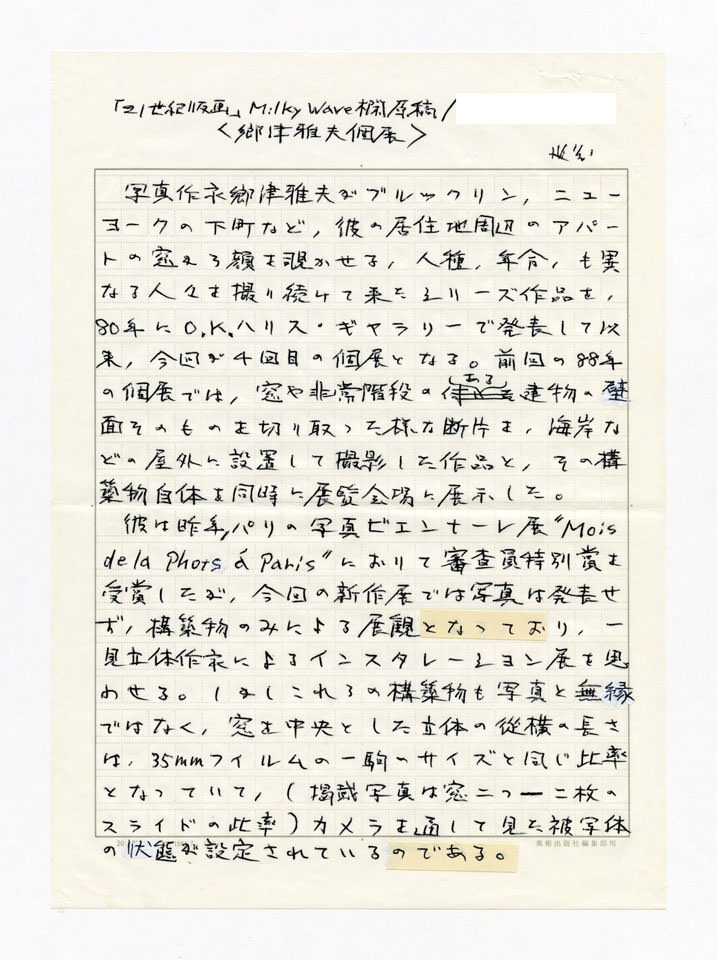 「21世紀版画」Milky Wave欄原稿/
<郷津雅夫個展>
写真作家郷津雅夫がブルックリン，ニュー
ヨークの下町など，彼の居住地周辺のアパー
トの窓から顔を覗かせる，人種，年令，も異
なる人々を撮り続けて来たシリーズ作品を，
80年にO.K.ハリス・ギャラリーで発表して以
来，今回が4回目の個展となる。前回の88年
ある
の個展では，窓や非常階段の建物の壁
面そのものを切り取った様な断片を，海岸な
どの屋外に設置して撮影した作品と，その構
築物自体を同時に展覧会場に展示した。
彼は昨年,パリの写真ビエンナーレ展"Mois
de la Photo á Paris"において審査員特別賞を
受賞したが，今回の新作展では写真は発表せ
ず，構築物のみによる展観となっており，一
見立体作家によるインスタレーション展を思
わせる。しかしこれらの構築物も写真と無縁
ではなく，窓を中央とした立体の従横の長さ
は，35mmフィルムの一駒のサイズと同じ比率
となっていて，(掲載写真は窓二つー二枚の
スライドの比率)カメラを通して見た被写体
の状態が設定されているのである。
美術出版社編集部用